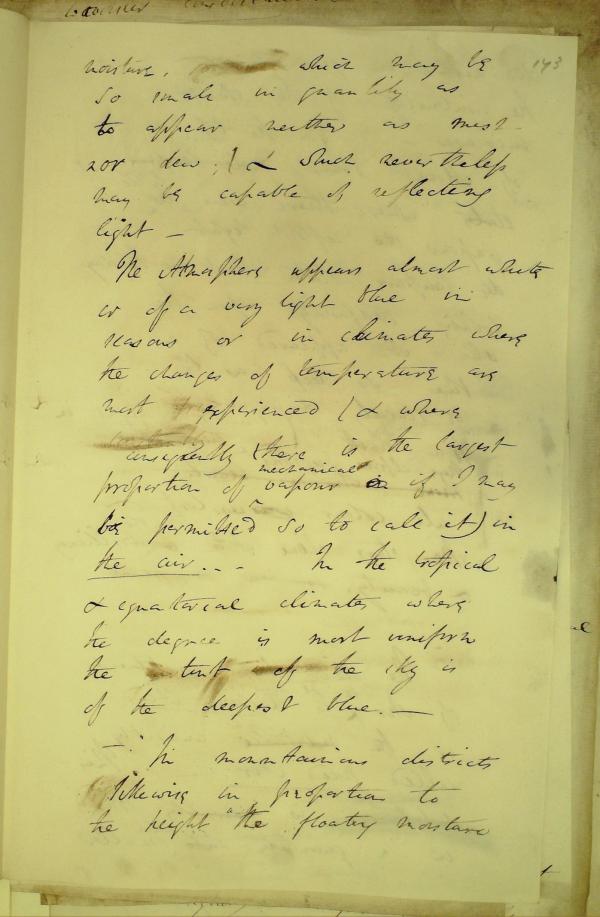 143
moisture, which may be
so small in quantity as
to appear neither as mist
nor dew; / & which nevertheless
may be capable of reflecting
light —
The Atmosphere appears almost white
or of a very light blue in
seasons or in climates where
the changes of temperature are
most experienced / & where
consequently there is the largest
proportion of mechanical vapour if I may
be permitted so to call it) in
the air. . - In the tropical
& equatorial climates where
the degree is most uniform
the tint of the sky is
of the deepest blue. —
— In mountainous districts
likewise in proportion to
the height the floating moisture